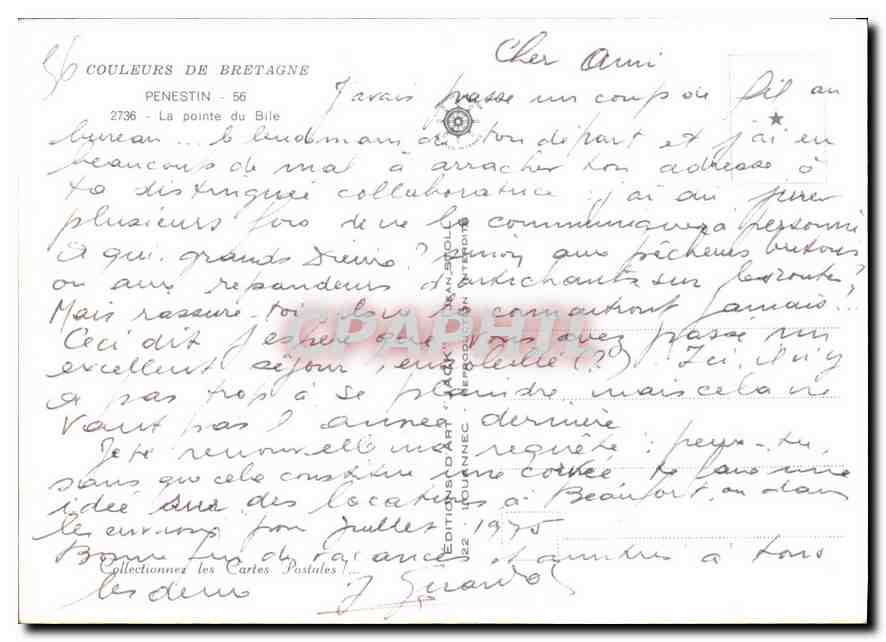 56
COULEURS DE BRETAGNE
PENESTIN - 56
2736 - La pointe du Bile
Cher Ami
J'avais passé un coup de fil au
bureau... le lendemain de ton départ et j'ai eu
beaucoup de mal à arracher ton adresse à
ta distinguée collaboratrice : j'ai dû jurer
plusieurs fois de ne la communiquer à personne
A qui, grands Dieux ? sinon aux pêcheurs bretons
ou aux répandeurs d'artichauts sur les routes ?
Mais rassure-toi, ils ne la connaîtront jamais !..
Ceci dit j'espère que vous avez passé un
excellent séjour, ensoleillé (?). Ici, il n'y
a pas trop à se plaindre, mais cela ne
vaut pas l'année dernière
Je te renouvelle ma requête : peux-tu
sans que cela constitue une corvée te faire une
idée sur des locations à Beaufort ou dans
les environs pour Juillet 1975
Bonne fin de vacances et amitiés à tous
les deux J Gerardol
Collectionnez les Cartes Postales !...
EDITIONS D'ART "JACK"
22 - LOUANNEC - REPRODUCTION INTERDITE
JEAN SCOLL
CPAPHIL